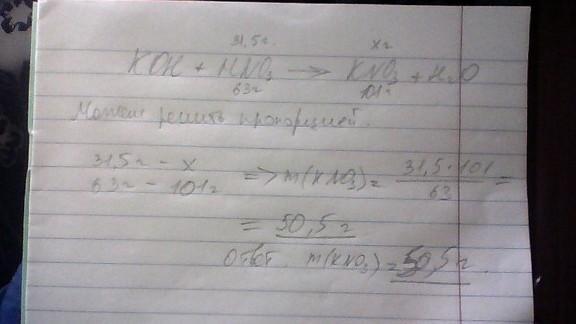 31,5г. хг
KOH + HNO₃ → KNO₃ + H₂O
63г 101г
Можем решить пропорцией.
31,5г – x
63г – 101г => m(KNO₃) = 31,5·101 / 63 =
= 50,5 г
Ответ. m(KNO₃) = 50,5 г.